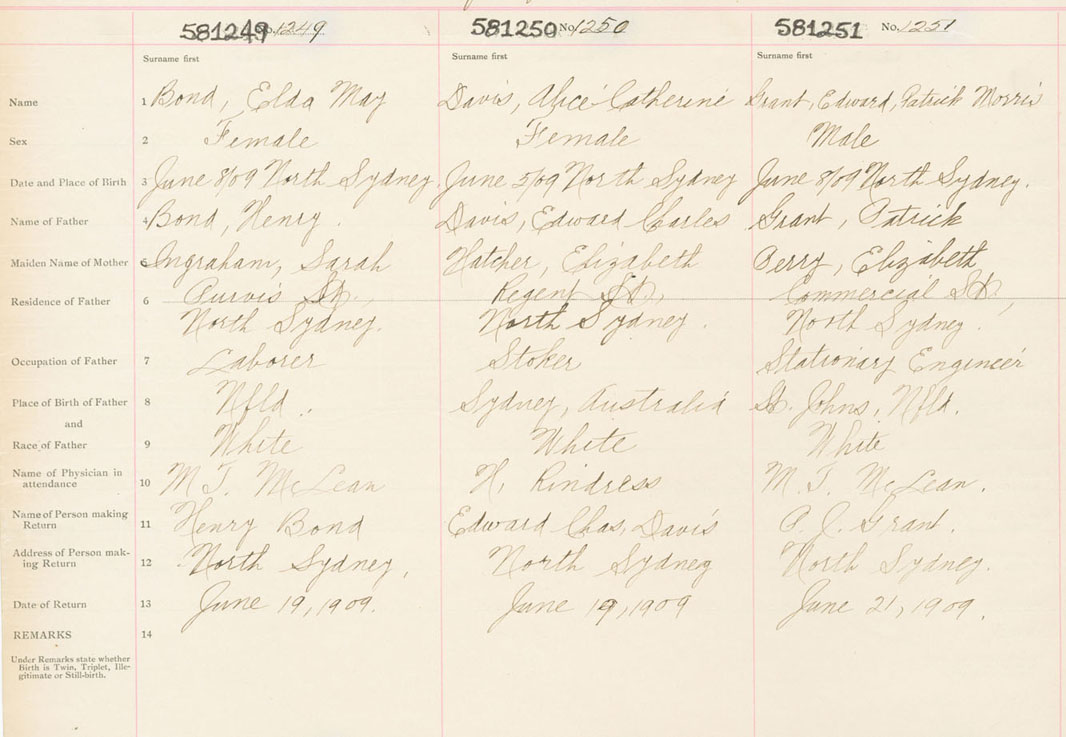 581249 No. 1249 581250 No 1250 581251 No. 1251
Surname first Surname first Surname first
Name 1 Bond, Elda May Davis, Alice Catherine Grant, Edward, Patrick Morris
Sex 2 Female Female Male
Date and Place of Birth 3 June 8/09 North Sydney June 5/09 North Sydney June 8/09 North Sydney.
Name of Father 4 Bond, Henry. Davis, Edward Charles Grant, Patrick
Maiden Name of Mother 5 Ingraham, Sarah Hatcher, Elizabeth Perry, Elizabeth
Residence of Father 6 Purvis St., Regent St., Commercial St.,
North Sydney. North Sydney. North Sydney.
Occupation of Father 7 Laborer Stoker Stationary Engineer
Place of Birth of Father 8 Nfld.. Sydney, Australia St. Johns, Nfld.
and
Race of Father 9 White White White
Name of Physician in
attendance 10 M. J. McLean H, Rindress M. J. McLean.
Name of Person making
Return 11 Henry Bond Edward Chas, Davis P. J. Grant.
Address of Person mak-
ing Return 12 North Sydney, North Sydney North Sydney.
Date of Return 13 June 19, 1909. June 19, 1909 June 21, 1909.
REMARKS 14
Under Remarks state whether
Birth is Twin, Triplet, Ille-
gitimate or Still-birth.